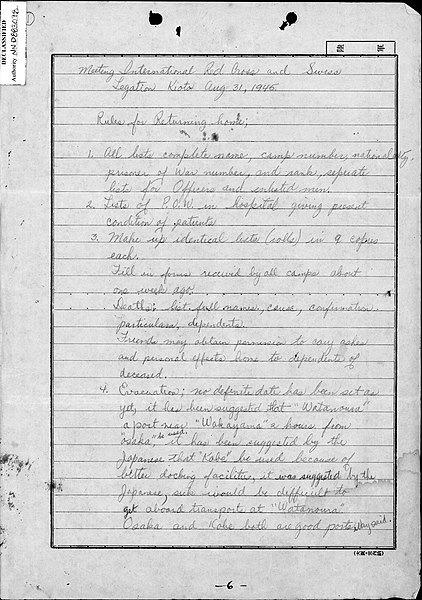 DECLASSIFIED
Authority NND883078
陸 軍
Meeting International Red Cross and Swiss
Legation Kioto Aug 31, 1945.
Rules for Returning home;
1. All lists complete name, camp number, nationality,
prisoner of War number, and rank, seperate
lists for Officers and enlisted men.
2. Lists of P.O.W. in hospital giving present
condition of patients
3. Make up identical lists (rolls) in 9 copies
each.
Fill in forms received by all camps about
one week ago.
Deaths; list full names, cause, confirmation
particulars, dependents.
Friends may obtain permission to cary ashes
and personal effects home to dependents of
deceased.
4. Evacuation; no definite date has been set as
yet, it has been suggested that "Watanoura"
a port near "Wakayama" 2 hours from
osaka, be used, it has been suggested by the
Japanese that "Kobe" be used because of
better docking facilities, it was suggested by the
Japanese, sick would be difficult to
get aboard transports at "Watanoura"
Osaka and Kobe both are good ports, they said.
-6-